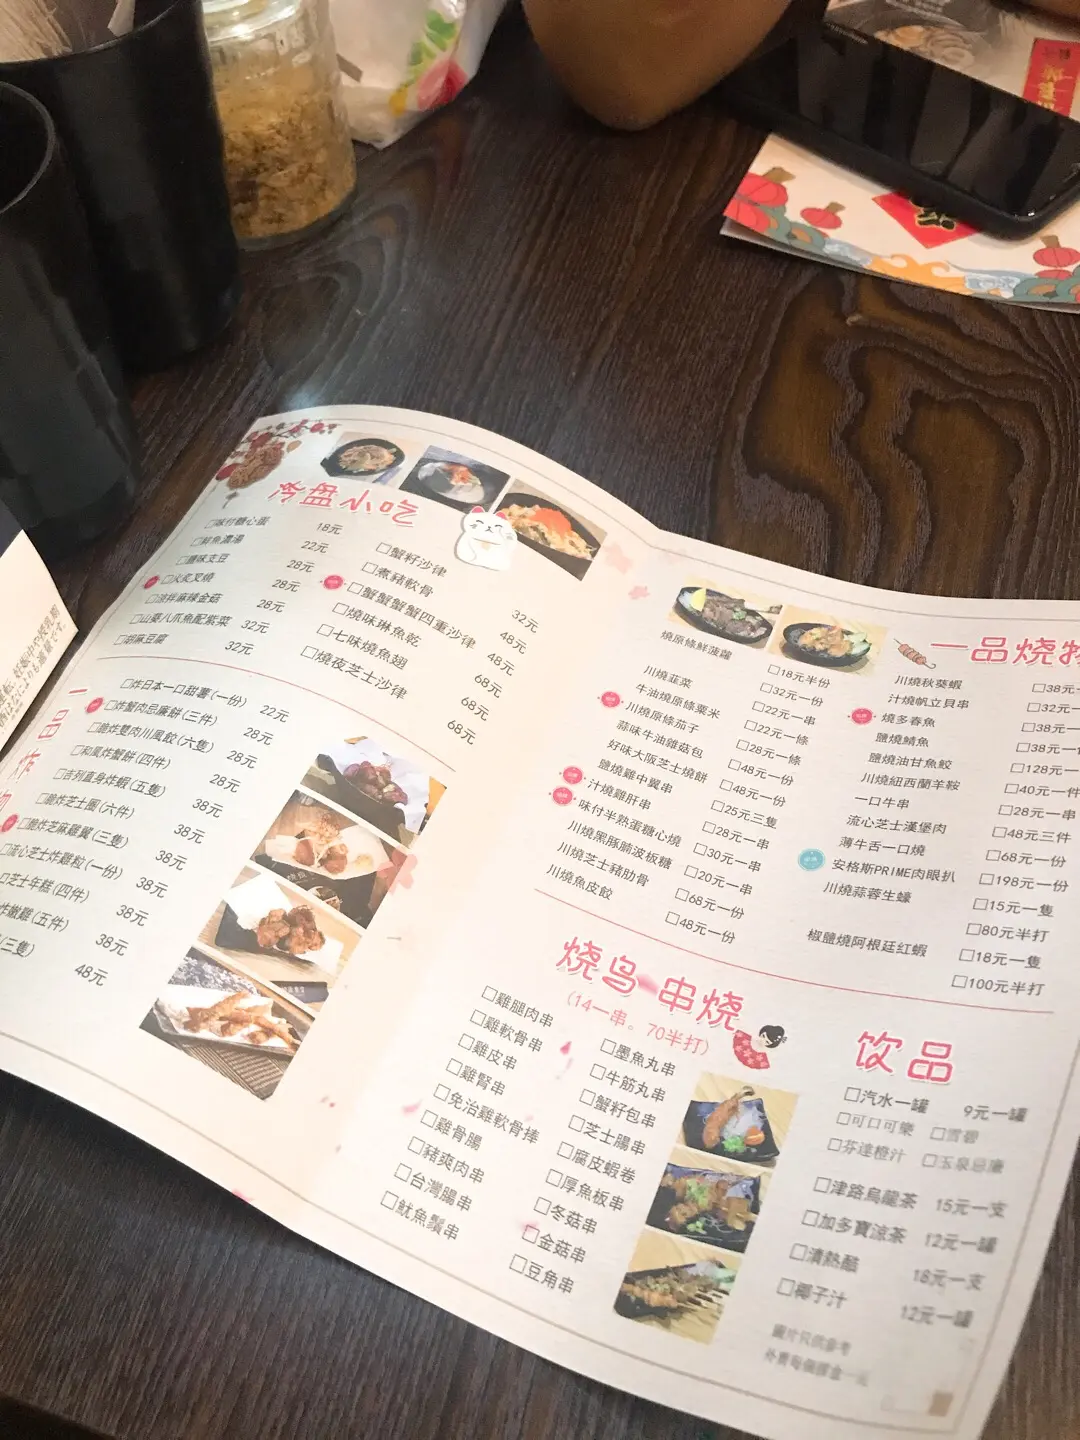 冷盘小吃
□味付糖心蛋 18元
□鮮魚濃湯 22元
□鹽味支豆 28元
□火炙叉燒 28元
□涼拌麻辣金菇 28元
□山葵八爪魚配紫菜 32元
□胡麻豆腐 32元
□蟹籽沙律 32元
□煮豬軟骨 48元
□蟹蟹蟹蟹四重沙律 48元
□燒味琳魚乾 68元
□七味燒魚翅 68元
□燒夜芝士沙律 68元
一品炸物
□炸日本一口甜薯(一份) 22元
□炸蟹肉忌廉餅(三件) 28元
□脆炸雙肉川風餃(六隻) 28元
□和風炸蟹餅(四件) 28元
□吉列直身炸蝦(五隻) 38元
□脆炸芝士圈(六件) 38元
□脆炸芝麻雞翼(三隻) 38元
□流心芝士炸雞粒(一份) 38元
芝士年糕(四件) 38元
炸嫩雞(五件) 38元
(三隻) 48元
一品烧物
燒原條鮮菠蘿 □18元半份
川燒韮菜 □32元一份
牛油燒原條粟米 □22元一串
川燒原條茄子 □22元一條
蒜味牛油雜菇包 □28元一條
好味大阪芝士燒餅 □48元一份
鹽燒雞中翼串 □48元一份
汁燒雞肝串 □25元三隻
味付半熟蛋糖心燒 □28元一串
川燒黑豚腩波板糖 □30元一串
川燒芝士豬肋骨 □20元一串
川燒魚皮餃 □68元一份
□48元一份
川燒秋葵蝦 □38元
汁燒帆立貝串 □32元一
燒多春魚 □38元一
鹽燒鯖魚 □38元一
鹽燒油甘魚鮫 □128元一
川燒紐西蘭羊鞍 □40元一件
一口牛串 □28元一串
流心芝士漢堡肉 □48元三件
薄牛舌一口燒 □68元一份
安格斯PRIME肉眼扒 □198元一份
川燒蒜蓉生蠔 □15元一隻
□80元半打
椒鹽燒阿根廷红蝦 □18元一隻
□100元半打
烧鸟 串烧
(14一串。70半打)
□雞腿肉串
□雞軟骨串
□雞皮串
□雞腎串
□免治雞軟骨捧
□雞骨腸
□豬爽肉串
□台灣腸串
□魷魚鬚串
□墨魚丸串
□牛筋丸串
□蟹籽包串
□芝士腸串
□腐皮蝦卷
□厚魚板串
□冬菇串
□金菇串
□豆角串
饮品
□汽水一罐 9元一罐
□可口可樂 □雪碧
□芬達橙汁 □玉泉忌廉
□津路烏龍茶 15元一支
□加多寶涼茶 12元一罐
□漬熱酷 18元一支
□椰子汁 12元一罐
圖片只供參考